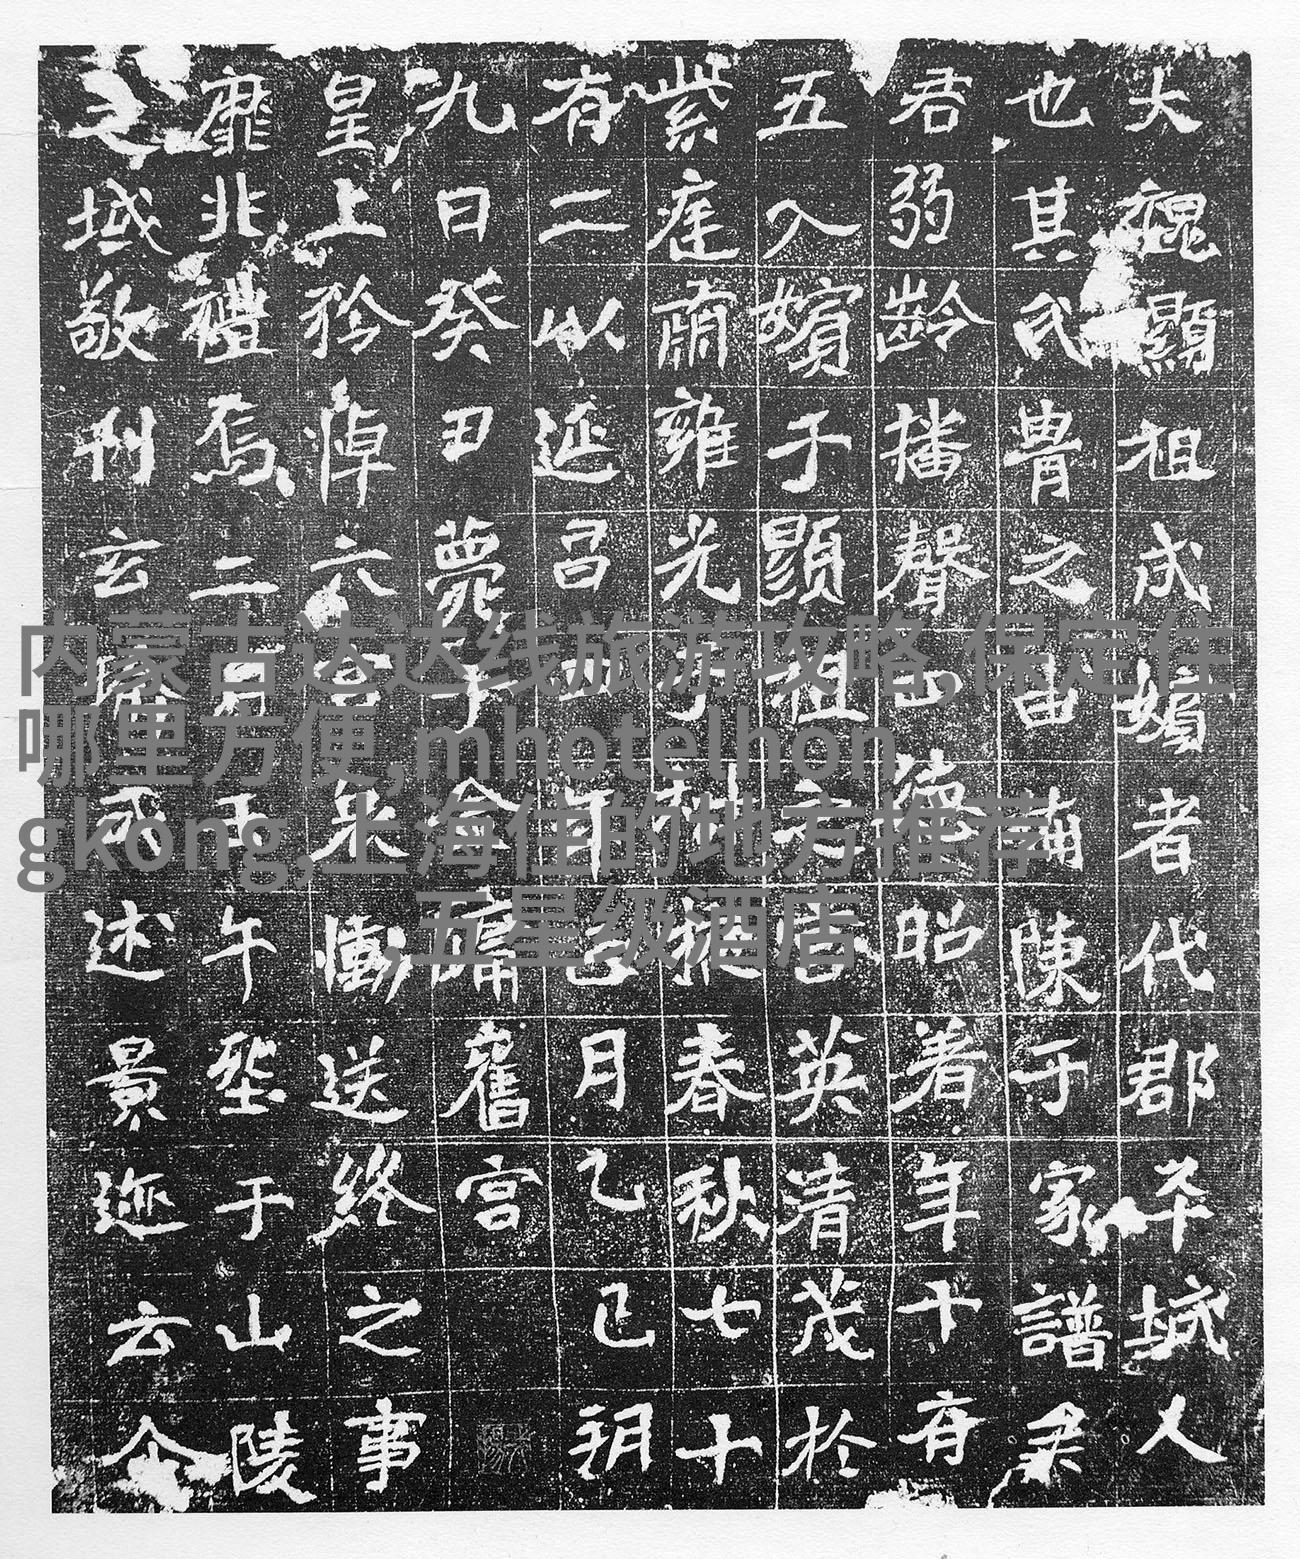 大魏顯祖成嬪者代郡平城人
也其氏胄之由陳于家譜矣
君弱齡播聲德昭著年十有
五入嬪于顯祖英清茂於
紫庭肅雍光于掖春秋七十
有二以延昌四年正月乙巳朔
九日癸丑薨于金墉舊宮
皇上矜悼六宮哀慟送終之事
靡非禮焉二月壬午塟于山陵
之域敬刊玄述景迹云尒
内蒙古达达线旅游攻略,保定住
哪里方便,mhotelhon
gkong,上海住的地方推荐
,五星级酒店